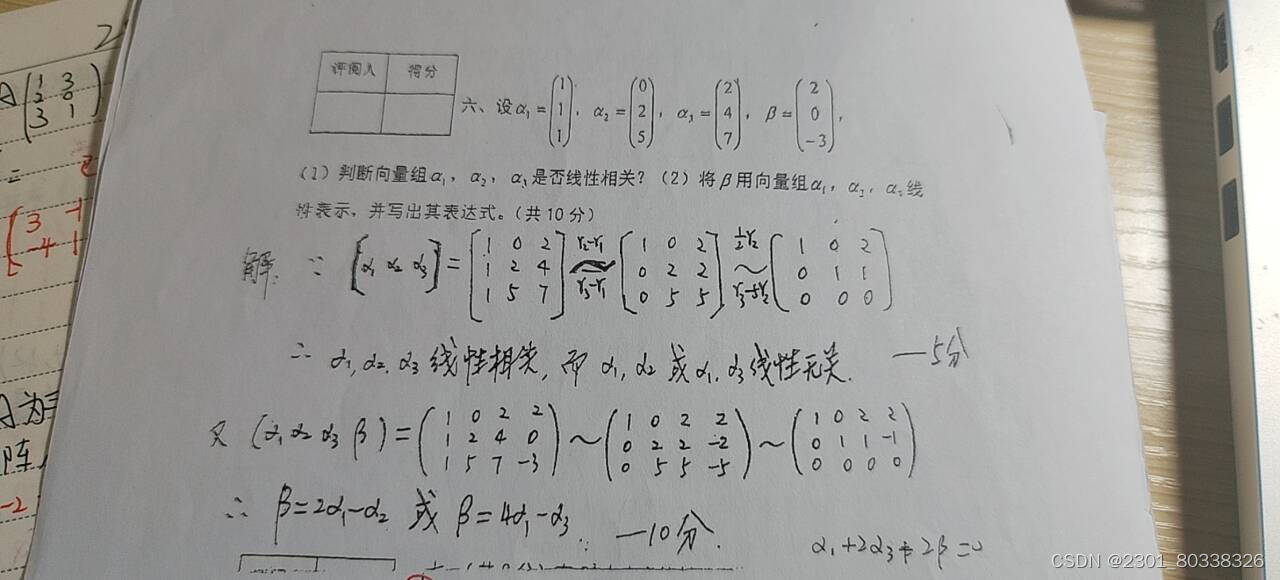 评阅人 得分
六、设α₁=(1 1 1), α₂=(0 2 5), α₃=(2 4 7), β=(2 0 -3),
(1)判断向量组α₁, α₂, α₃是否线性相关?(2)将β用向量组α₁, α₂, α₃线
性表示,并写出其表达式。(共10分)
解. ∵ [α₁ α₂ α₃] = [1 0 2; 1 2 4; 1 5 7] r₂-r₁ ~ r₃-r₁ [1 0 2; 0 2 2; 0 5 5] ½r₂ ~ r₃-5r₂ [1 0 2; 0 1 1; 0 0 0]
∴ α₁, α₂, α₃ 线性相关, 而 α₁, α₂ 或 α₁, α₃ 线性无关. —5分
又 (α₁ α₂ α₃ β) = (1 0 2 2; 1 2 4 0; 1 5 7 -3) ~ (1 0 2 2; 0 2 2 -2; 0 5 5 -5) ~ (1 0 2 2; 0 1 1 -1; 0 0 0 0)
∴ β=2α₁-α₂ 或 β=4α₁-α₃. —10分.
CSDN @2301_80338326
A (1 3; 2 0; 3 1)
=
3 -1
-4 1
A为
阵
-2